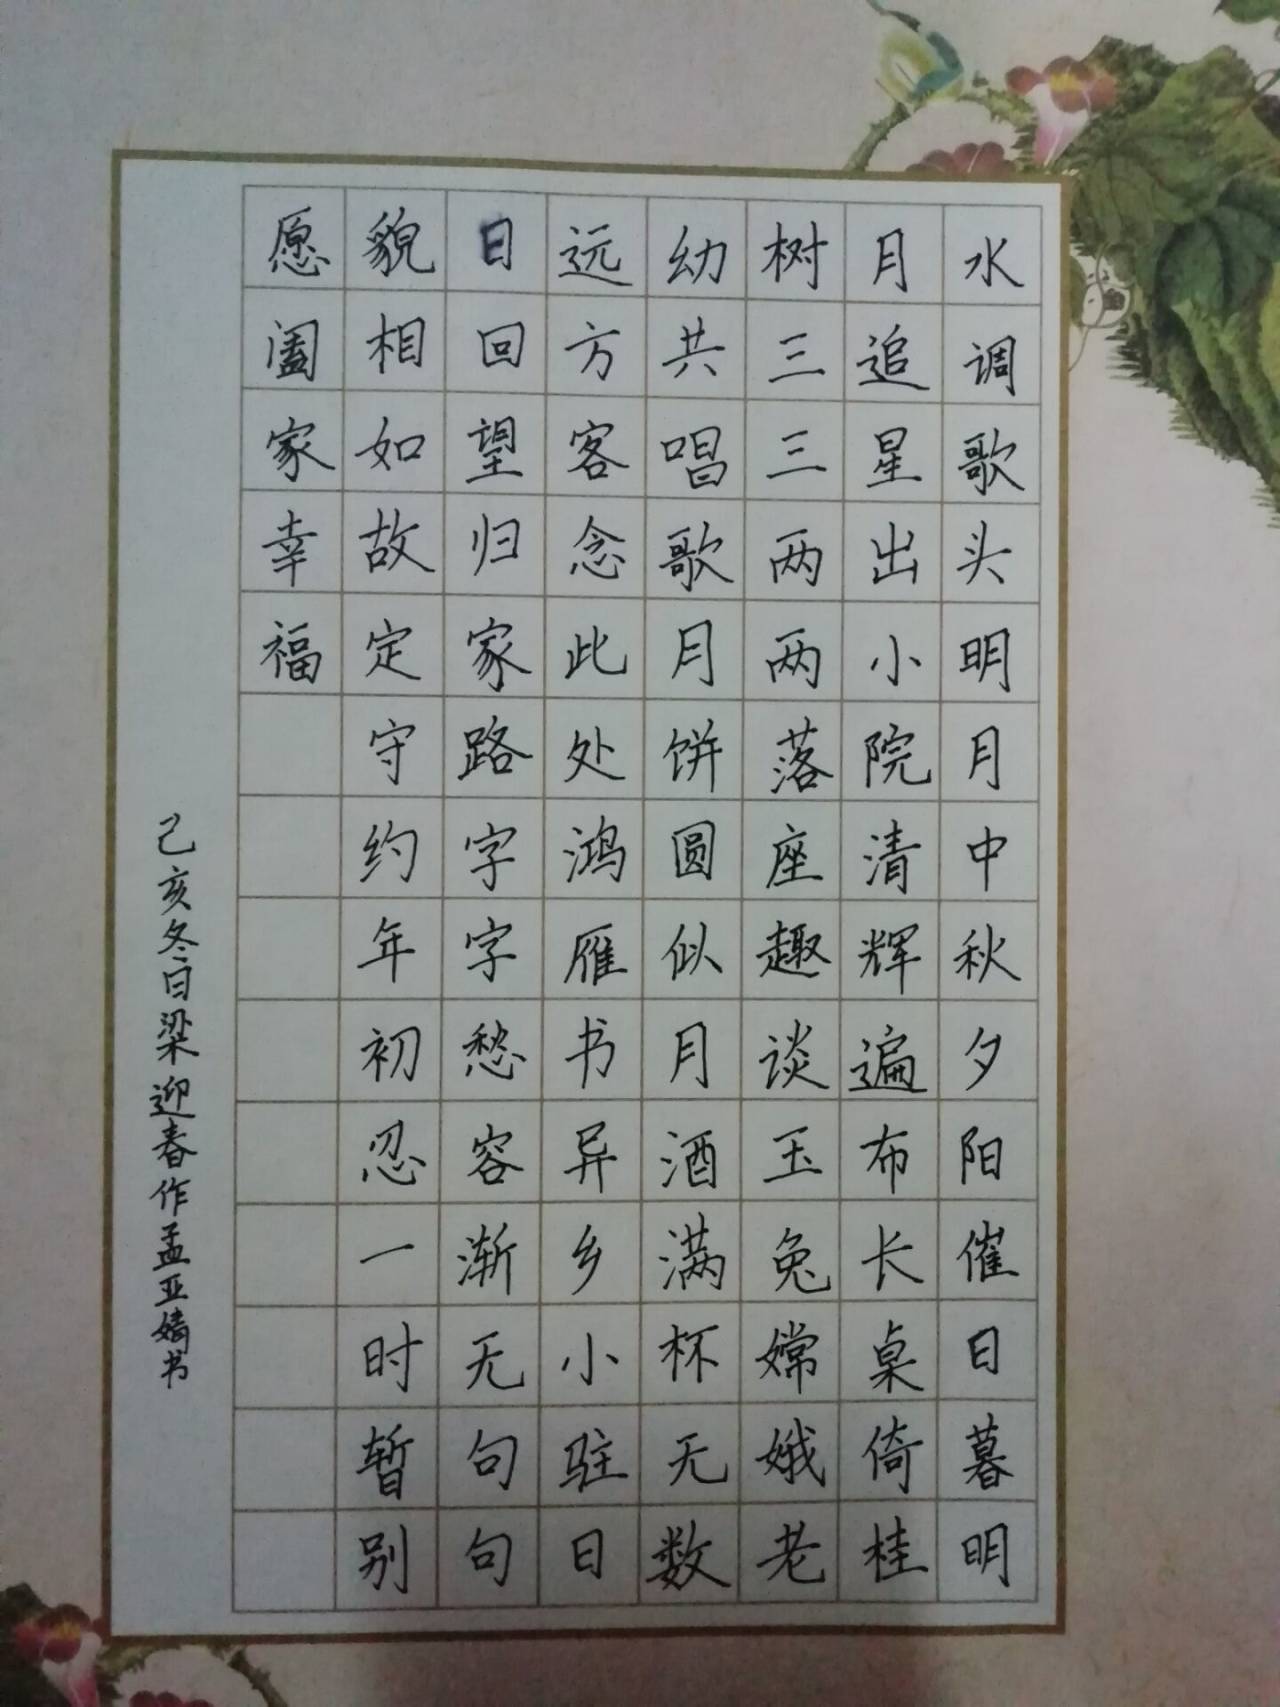 水调歌头明月中秋夕阳催日暮明
月追星出小院清辉遍布长桌倚桂
树三三两两落座趣谈玉兔嫦娥老
幼共唱歌月饼圆似月酒满杯无数
远方客念此处鸿雁书异乡小驻日
日回望归家路字字愁容渐无句句
貌相如故定守约年初忍一时暂别
愿阖家幸福
己亥冬日梁迎春作孟亚嫱书